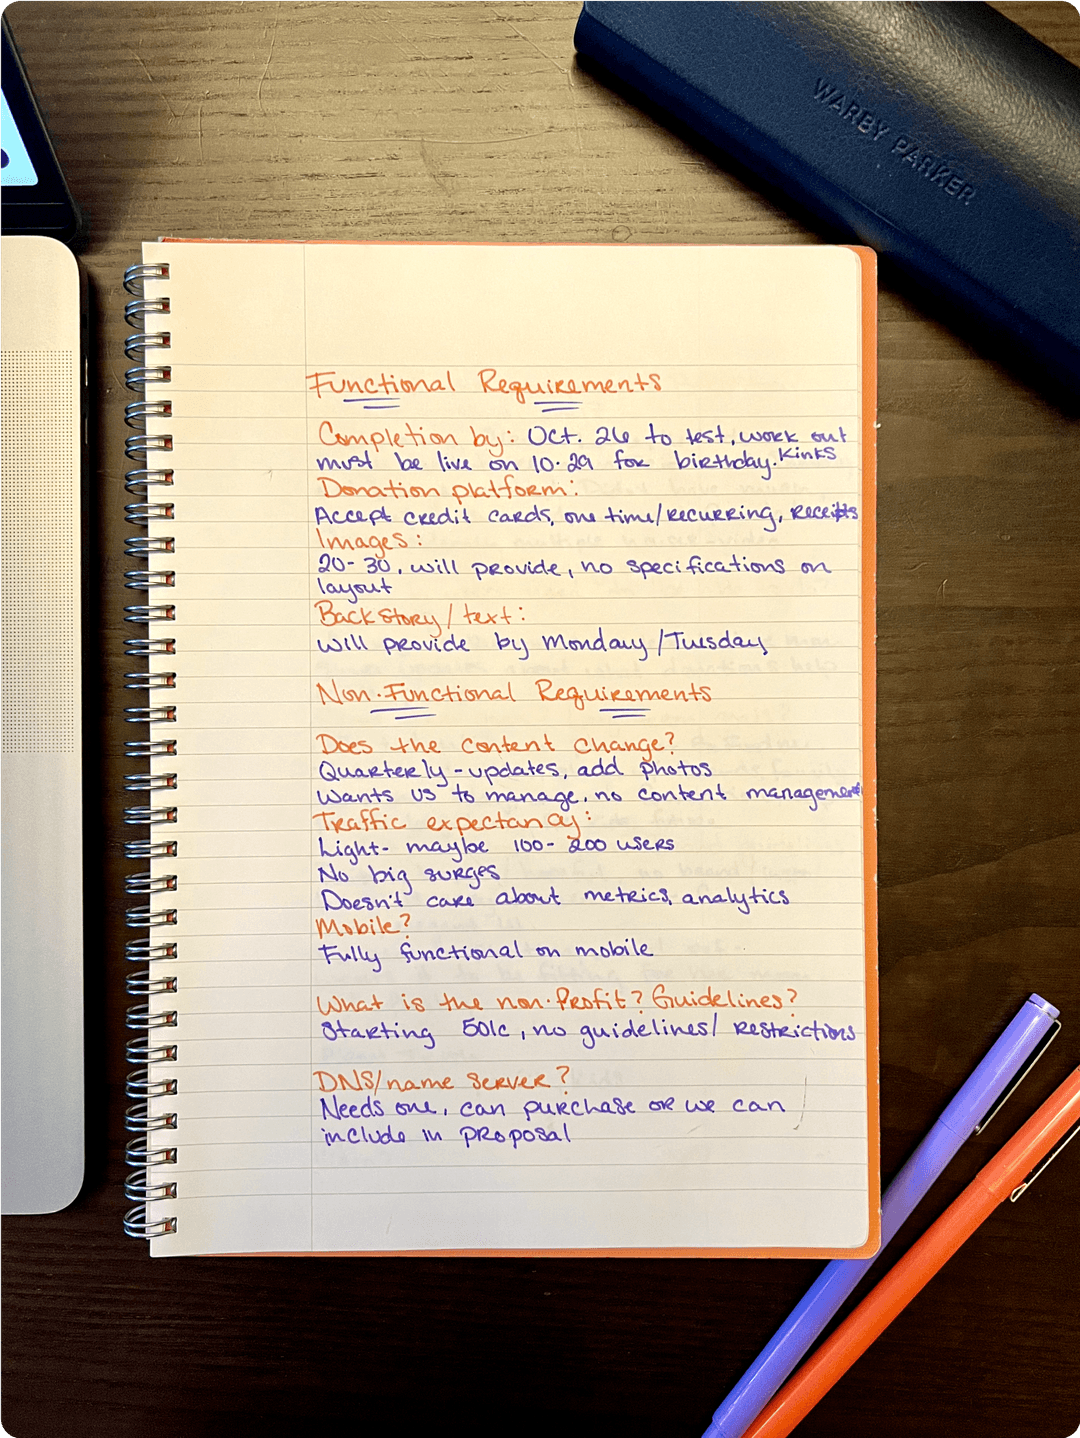 WARBY PARKER
Functional Requirements
Completion by: Oct. 26 to test, work out
must be live on 10.29 for birthday. Kinks
Donation platform:
Accept credit cards, one time/recurring, receipts
Images:
20-30, will provide, no specifications on
layout
Backstory/text:
will provide by Monday/Tuesday
Non-Functional Requirements
Does the content change?
Quarterly - updates, add photos
Wants us to manage, no content management
Traffic expectancy:
Light- maybe 100-200 users
No big surges
Doesn't care about metrics, analytics
Mobile?
Fully functional on mobile
What is the non-Profit? Guidelines?
Starting 501c, no guidelines/restrictions
DNS/name server?
Needs one, can purchase or we can
include in proposal